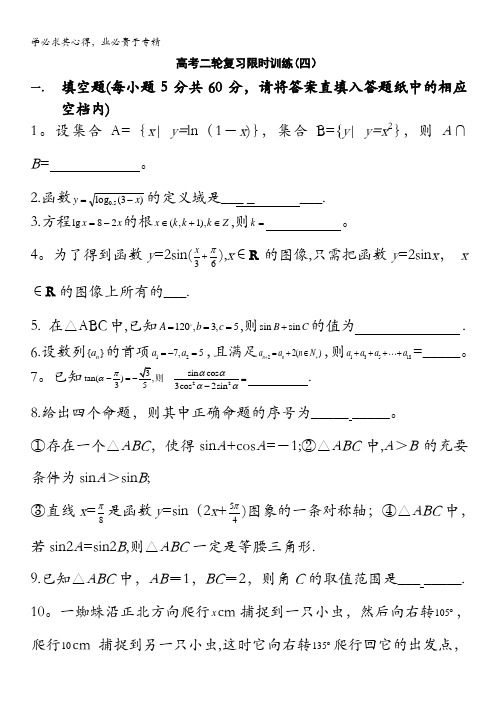 学必求其心得，业必贵于专精
高考二轮复习限时训练(四)
一. 填空题(每小题5分共60分，请将答案直填入答题纸中的相应
空档内)
1。设集合 A={x| y=ln（1－x)}，集合 B={y| y=x²}，则 A∩
B=　　　。
2.函数 y=√log₀.₅(3－x) 的定义域是___ _ ___.
3.方程 lg x=8－2x 的根 x∈(k,k+1),k∈Z,则 k=　　　。
4。为了得到函数 y=2sin(x/3+π/6),x∈R 的图像,只需把函数 y=2sinx， x
∈R 的图像上所有的___.
5. 在△ABC中,已知 A=120°,b=3,c=5,则 sin B+sin C 的值为　　　.
6.设数列{aₙ} 的首项 a₁=－7,a₂=5，且满足 aₙ₊₂=aₙ+2(n∈N₊)，则 a₁+a₃+a₅+⋯+a₁₈ =______。
7。已知 tan(α－π/3)=－√3/5,则 sinαcosα/(3cos²α－2sin²α)=　　　.
8.给出四个命题，则其中正确命题的序号为______ ______。
①存在一个△ABC，使得 sinA+cosA=－1;②△ABC 中,A＞B 的充要
条件为 sinA＞sinB;
③直线 x=π/8 是函数 y=sin（2x+5π/4)图象的一条对称轴；④△ABC 中，
若 sin2A=sin2B,则△ABC 一定是等腰三角形.
9.已知△ABC 中，AB＝1，BC＝2，则角 C 的取值范围是___ ______.
10。一蜘蛛沿正北方向爬行 x cm 捕捉到一只小虫，然后向右转 105°，
爬行 10 cm 捕捉到另一只小虫,这时它向右转 135° 爬行回它的出发点，